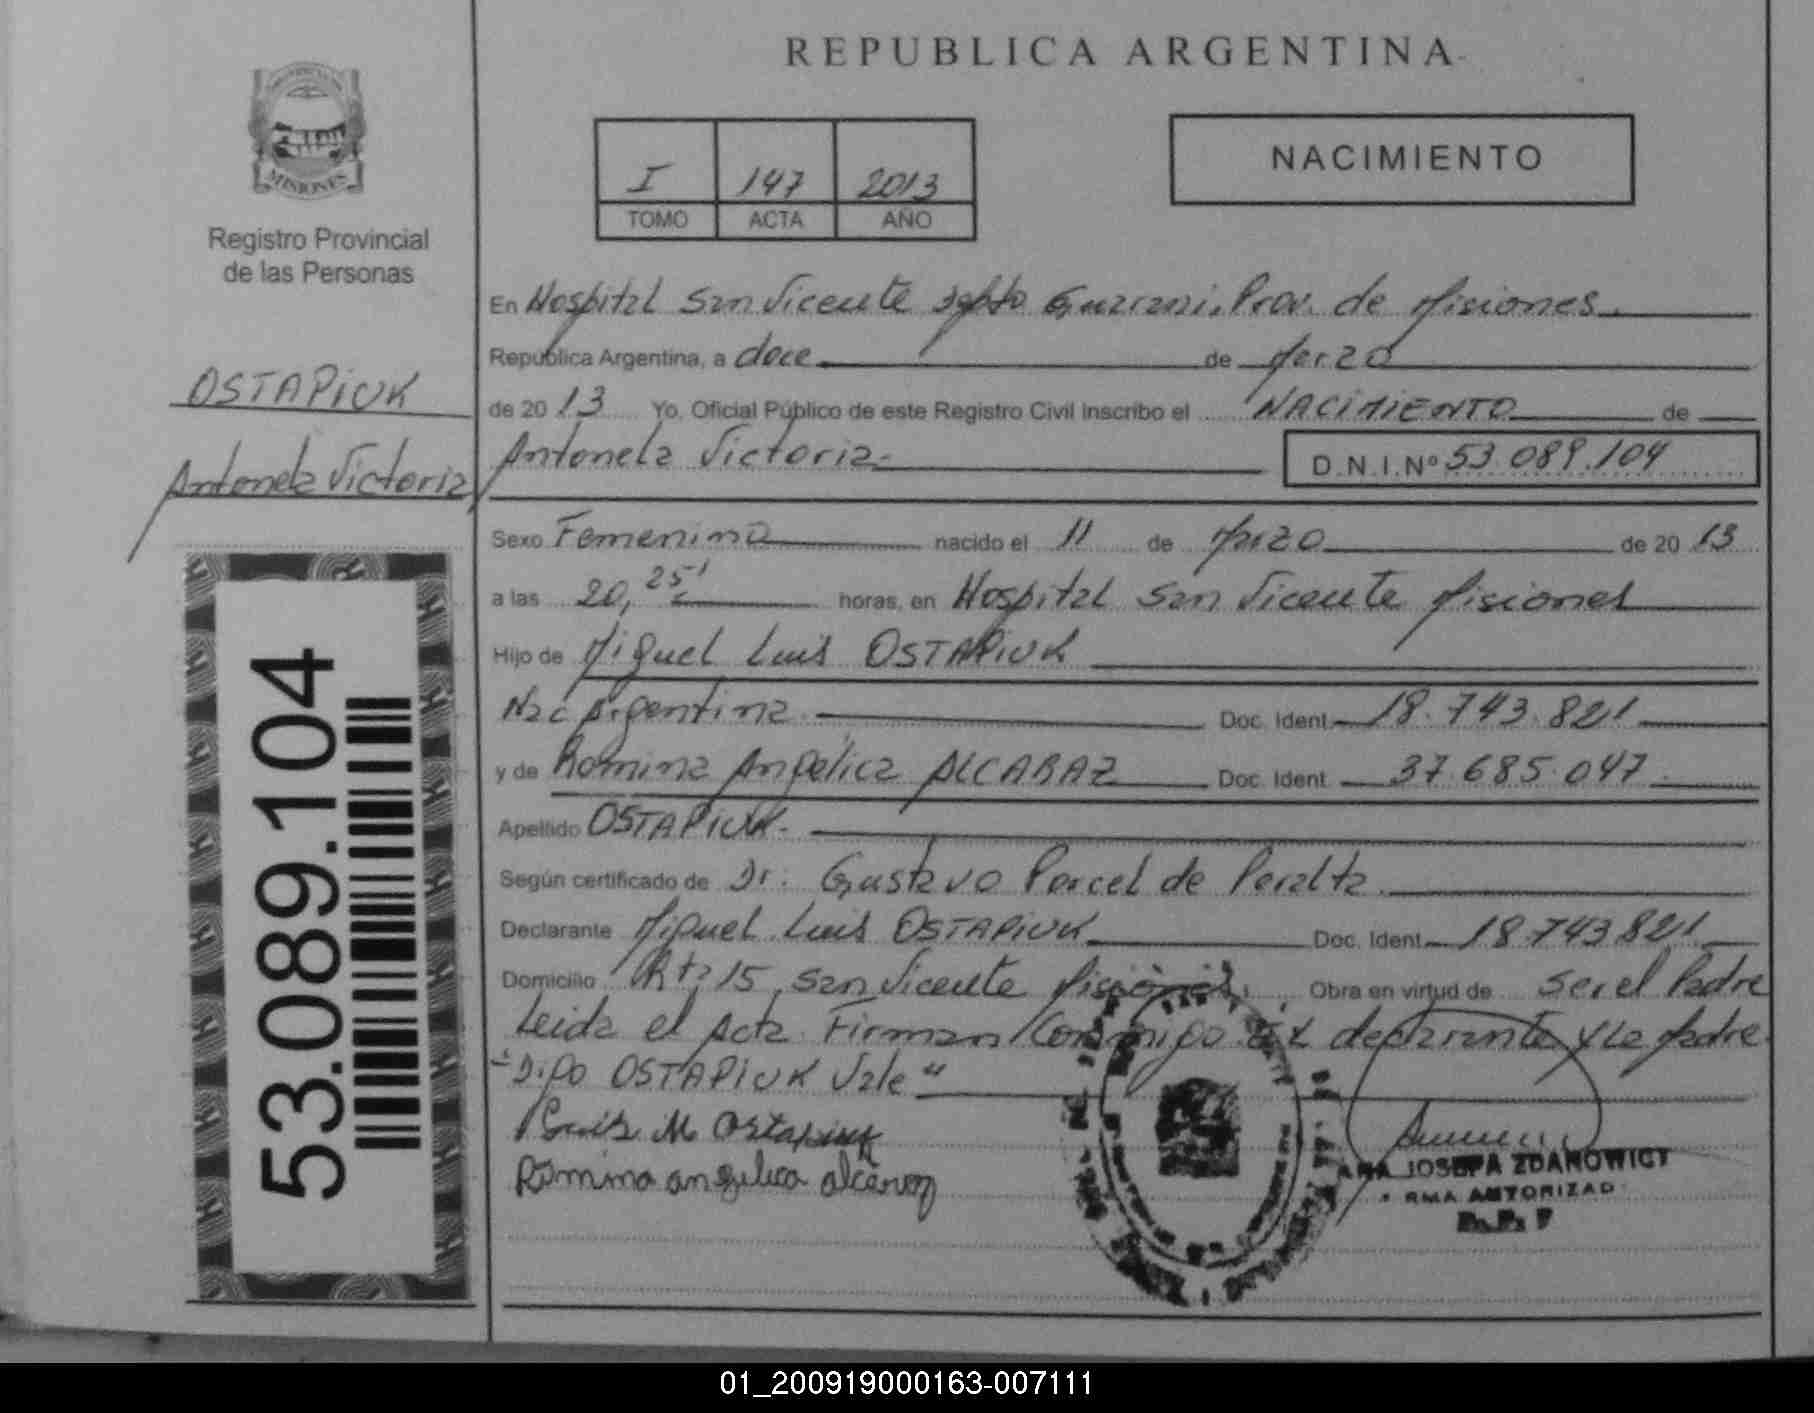 REPUBLICA ARGENTINA
MISIONES
Registro Provincial
de las Personas
I 147 2013
TOMO ACTA AÑO
NACIMIENTO
OSTAPIUK
Antonela Victoria
53.089.104
En Hospital San Vicente Dpto Guarani, Prov. de Misiones.
Republica Argentina, a doce de Marzo
de 2013 Yo, Oficial Público de este Registro Civil Inscribo el NACIMIENTO de
Antonela Victoria.- D.N.I.Nº 53.089.104
Sexo Femenino nacido el 11 de Marzo de 2013
a las 20,25' horas, en Hospital San Vicente Misiones
Hijo de Miguel Luis OSTAPIUK
Nac Argentina. Doc. Ident. 18.743.821
y de Romina Angelica ALCARAZ Doc. Ident. 37.685.047
Apellido OSTAPIUK.
Según certificado de Dr. Gustavo Porcel de Peralta.
Declarante Miguel Luis OSTAPIUK Doc. Ident. 18.743.821
Domicilio Rta 15, San Vicente Misiones. Obra en virtud de Ser el Padre
Leida el Acta Firman Conmigo El declarante y La Madre
"Digo OSTAPIUK Vale"
M Ostapiuk
Romina angelica alcaraz
ANA JOSEFA ZDANOWICZ
01_200919000163-007111